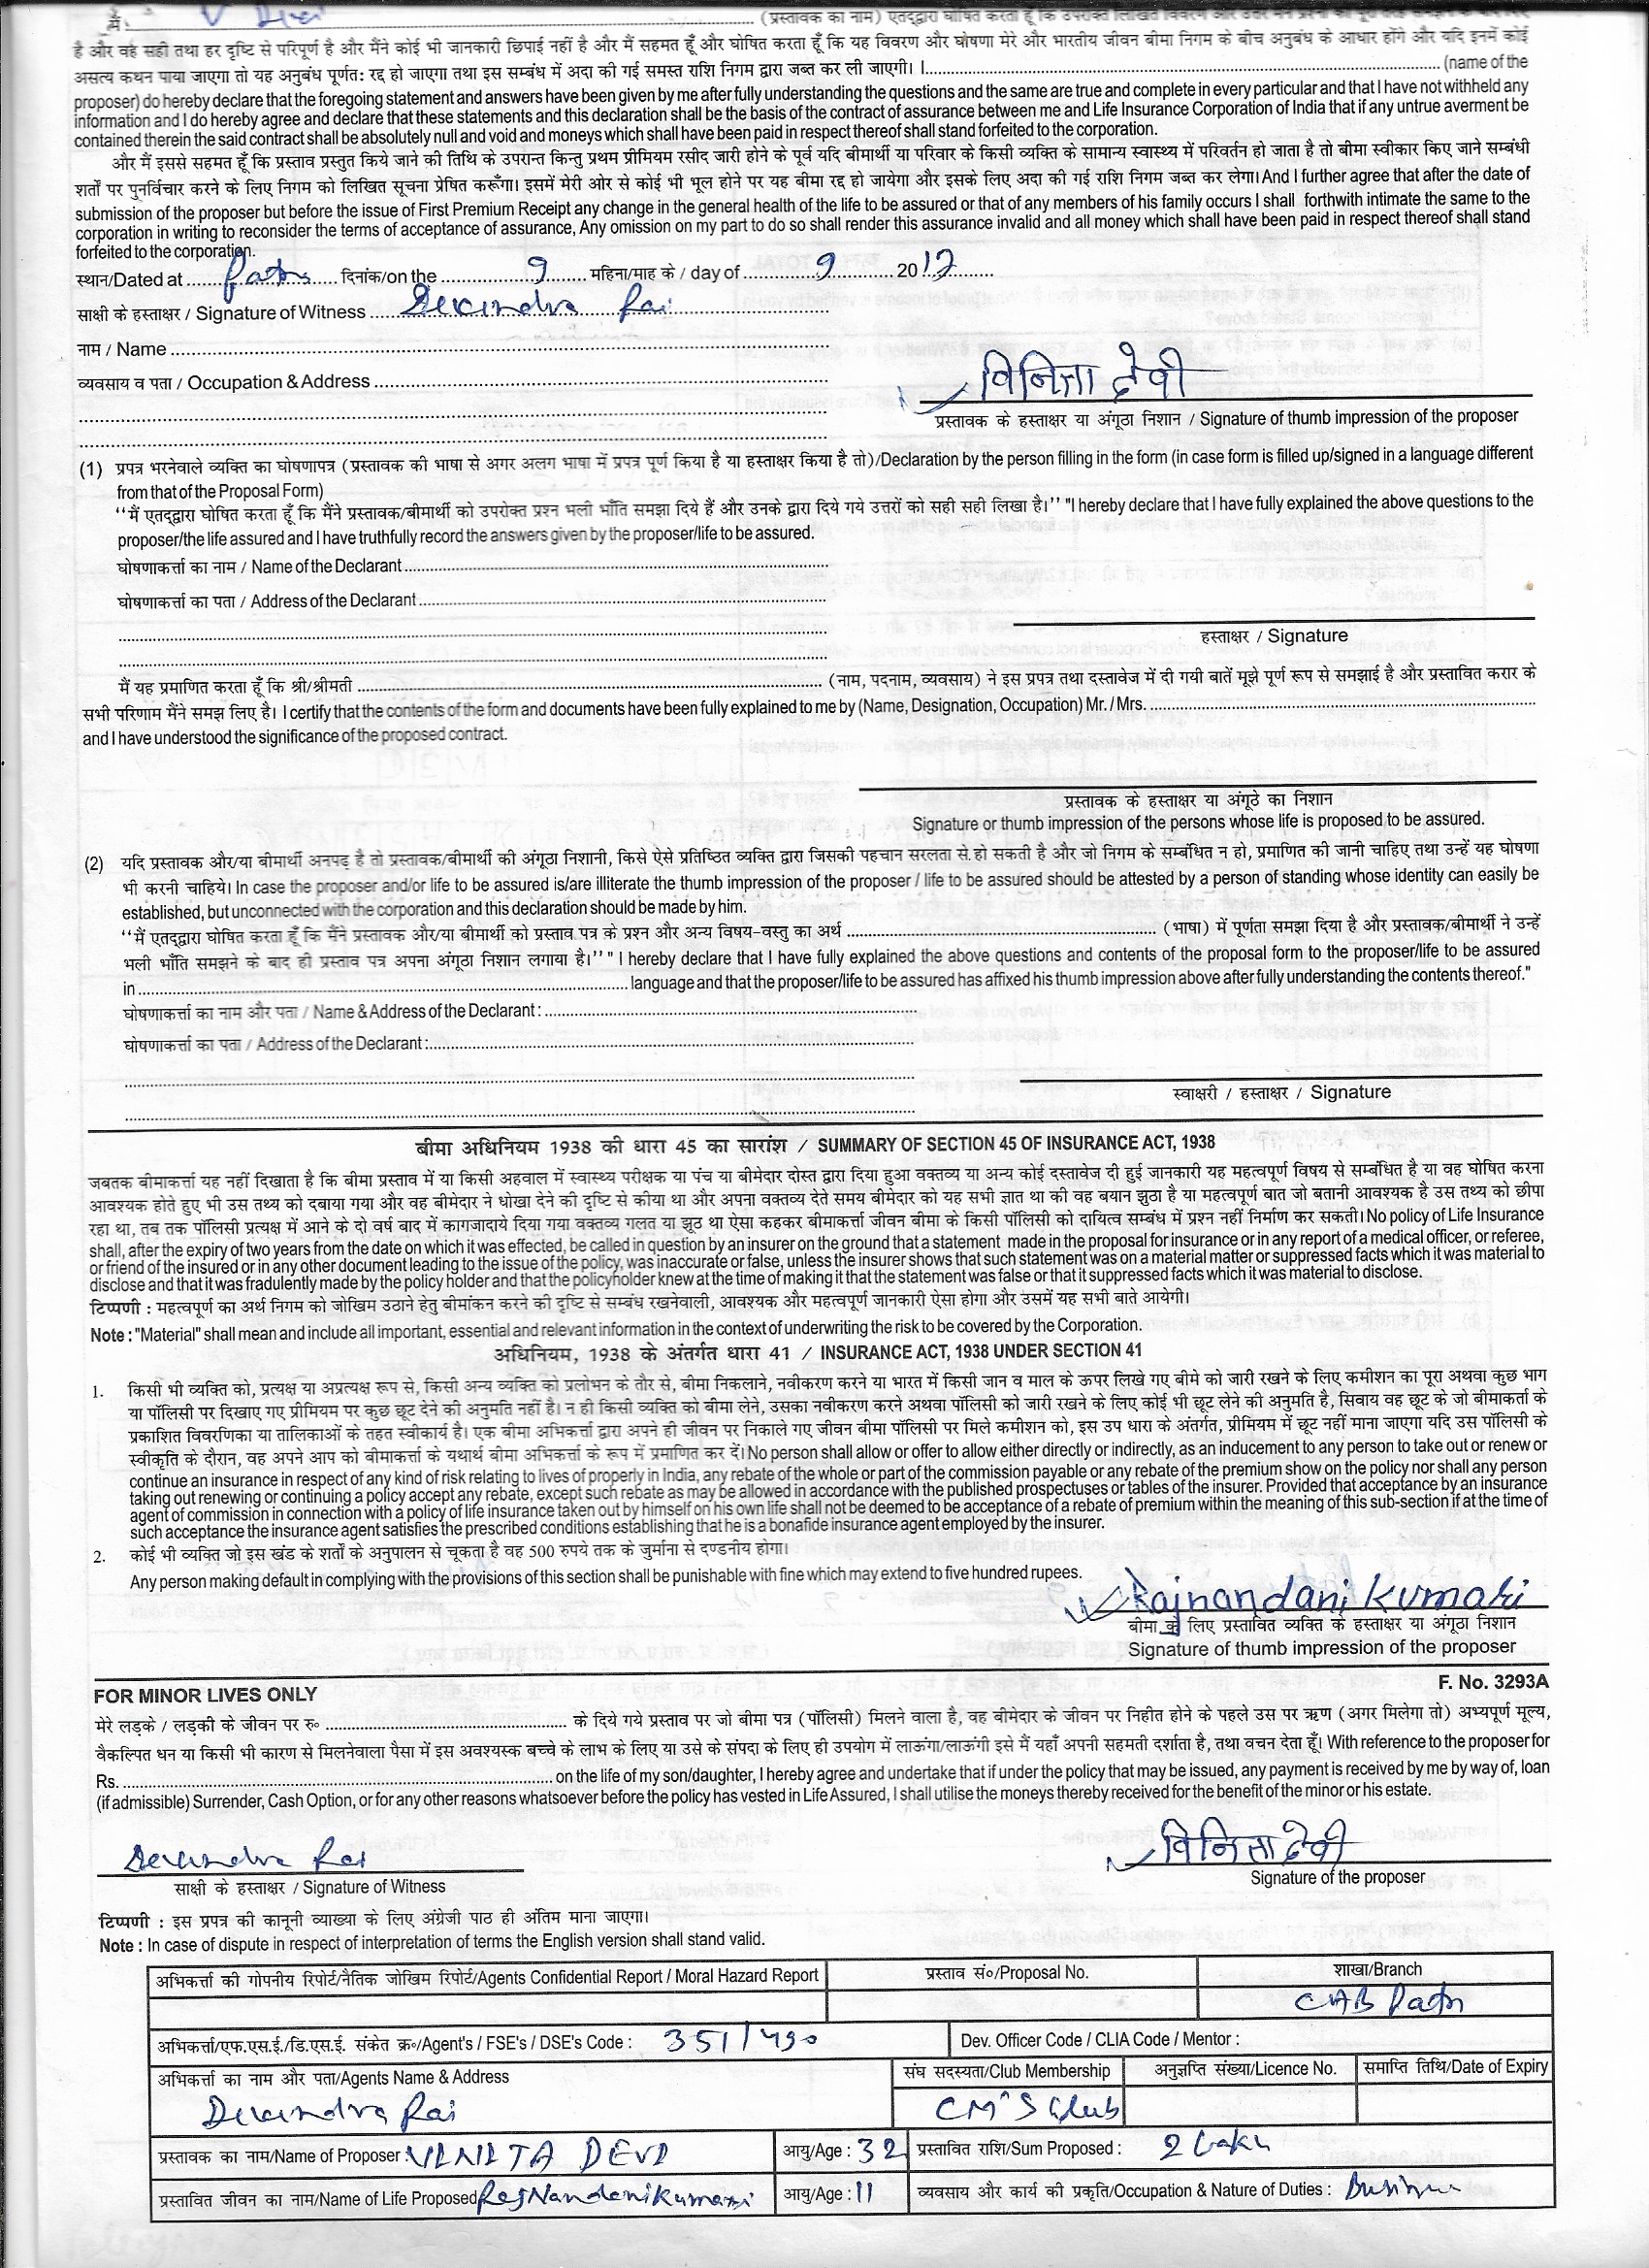 मैं, V Devi (प्रस्तावक का नाम) एतद्द्वारा घोषित करता हूँ कि उपरोक्त लिखित विवरण और उत्तर मैंने प्रश्नों को
है और वह सही तथा हर दृष्टि से परिपूर्ण है और मैंने कोई भी जानकारी छिपाई नहीं है और मैं सहमत हूँ और घोषित करता हूँ कि यह विवरण और घोषणा मेरे और भारतीय जीवन बीमा निगम के बीच अनुबंध के आधार होंगे और यदि इनमें कोई
असत्य कथन पाया जाएगा तो यह अनुबंध पूर्णत: रद्द हो जाएगा तथा इस सम्बंध में अदा की गई समस्त राशि निगम द्वारा जब्त कर ली जाएगी। I.......... (name of the
proposer) do hereby declare that the foregoing statement and answers have been given by me after fully understanding the questions and the same are true and complete in every particular and that I have not withheld any
information and I do hereby agree and declare that these statements and this declaration shall be the basis of the contract of assurance between me and Life Insurance Corporation of India that if any untrue averment be
contained therein the said contract shall be absolutely null and void and moneys which shall have been paid in respect thereof shall stand forfeited to the corporation.
और मैं इससे सहमत हूँ कि प्रस्ताव प्रस्तुत किये जाने की तिथि के उपरान्त किन्तु प्रथम प्रीमियम रसीद जारी होने के पूर्व यदि बीमार्थी या परिवार के किसी व्यक्ति के सामान्य स्वास्थ्य में परिवर्तन हो जाता है तो बीमा स्वीकार किए जाने सम्बंधी
शर्तों पर पुनर्विचार करने के लिए निगम को लिखित सूचना प्रेषित करूँगा। इसमें मेरी ओर से कोई भी भूल होने पर यह बीमा रद्द हो जायेगा और इसके लिए अदा की गई राशि निगम जब्त कर लेगा। And I further agree that after the date of
submission of the proposer but before the issue of First Premium Receipt any change in the general health of the life to be assured or that of any members of his family occurs I shall forthwith intimate the same to the
corporation in writing to reconsider the terms of acceptance of assurance, Any omission on my part to do so shall render this assurance invalid and all money which shall have been paid in respect thereof shall stand
forfeited to the corporation.
स्थान/Dated at ...... Patna ...... दिनांक/on the ...... 9 ...... महिना/माह के / day of ...... 9 ...... 2017
साक्षी के हस्ताक्षर / Signature of Witness .... Devendra Rai
नाम / Name ..........
व्यवसाय व पता / Occupation & Address ..........
विनिता देवी
प्रस्तावक के हस्ताक्षर या अंगूठा निशान / Signature of thumb impression of the proposer
(1) प्रपत्र भरनेवाले व्यक्ति का घोषणापत्र (प्रस्तावक की भाषा से अगर अलग भाषा में प्रपत्र पूर्ण किया है या हस्ताक्षर किया है तो)/Declaration by the person filling in the form (in case form is filled up/signed in a language different
from that of the Proposal Form)
‘‘मैं एतद्द्वारा घोषित करता हूँ कि मैंने प्रस्तावक/बीमार्थी को उपरोक्त प्रश्न भली भाँति समझा दिये हैं और उनके द्वारा दिये गये उत्तरों को सही सही लिखा है।’’ "I hereby declare that I have fully explained the above questions to the
proposer/the life assured and I have truthfully record the answers given by the proposer/life to be assured.
घोषणाकर्त्ता का नाम / Name of the Declarant ..........
घोषणाकर्त्ता का पता / Address of the Declarant ..........
हस्ताक्षर / Signature
मैं यह प्रमाणित करता हूँ कि श्री/श्रीमती .......... (नाम, पदनाम, व्यवसाय) ने इस प्रपत्र तथा दस्तावेज में दी गयी बातें मूझे पूर्ण रूप से समझाई है और प्रस्तावित करार के
सभी परिणाम मैंने समझ लिए है। I certify that the contents of the form and documents have been fully explained to me by (Name, Designation, Occupation) Mr. / Mrs. ..........
and I have understood the significance of the proposed contract.
प्रस्तावक के हस्ताक्षर या अंगूठे का निशान
Signature or thumb impression of the persons whose life is proposed to be assured.
(2) यदि प्रस्तावक और/या बीमार्थी अनपढ़ है तो प्रस्तावक/बीमार्थी की अंगूठा निशानी, किसे ऐसे प्रतिष्ठित व्यक्ति द्वारा जिसकी पहचान सरलता से हो सकती है और जो निगम के सम्बंधित न हो, प्रमाणित की जानी चाहिए तथा उन्हें यह घोषणा
भी करनी चाहिये। In case the proposer and/or life to be assured is/are illiterate the thumb impression of the proposer / life to be assured should be attested by a person of standing whose identity can easily be
established, but unconnected with the corporation and this declaration should be made by him.
‘‘मैं एतद्द्वारा घोषित करता हूँ कि मैंने प्रस्तावक और/या बीमार्थी को प्रस्ताव पत्र के प्रश्न और अन्य विषय-वस्तु का अर्थ .......... (भाषा) में पूर्णता समझा दिया है और प्रस्तावक/बीमार्थी ने उन्हें
भली भाँति समझने के बाद ही प्रस्ताव पत्र अपना अंगूठा निशान लगाया है।’’ " I hereby declare that I have fully explained the above questions and contents of the proposal form to the proposer/life to be assured
in .......... language and that the proposer/life to be assured has affixed his thumb impression above after fully understanding the contents thereof."
घोषणाकर्त्ता का नाम और पता / Name & Address of the Declarant : ..........
घोषणाकर्त्ता का पता / Address of the Declarant : ..........
स्वाक्षरी / हस्ताक्षर / Signature
बीमा अधिनियम 1938 की धारा 45 का सारांश / SUMMARY OF SECTION 45 OF INSURANCE ACT, 1938
जबतक बीमाकर्त्ता यह नहीं दिखाता है कि बीमा प्रस्ताव में या किसी अहवाल में स्वास्थ्य परीक्षक या पंच या बीमेदार दोस्त द्वारा दिया हुआ वक्तव्य या अन्य कोई दस्तावेज दी हुई जानकारी यह महत्वपूर्ण विषय से सम्बंधित है या वह घोषित करना
आवश्यक होते हुए भी उस तथ्य को दबाया गया और वह बीमेदार ने धोखा देने की दृष्टि से कीया था और अपना वक्तव्य देते समय बीमेदार को यह सभी ज्ञात था की वह बयान झुठा है या महत्वपूर्ण बात जो बतानी आवश्यक है उस तथ्य को छीपा
रहा था, तब तक पॉलिसी प्रत्यक्ष में आने के दो वर्ष बाद में कागजादाये दिया गया वक्तव्य गलत या झूठ था ऐसा कहकर बीमाकर्त्ता जीवन बीमा के किसी पॉलिसी को दायित्व सम्बंध में प्रश्न नहीं निर्माण कर सकती। No policy of Life Insurance
shall, after the expiry of two years from the date on which it was effected, be called in question by an insurer on the ground that a statement made in the proposal for insurance or in any report of a medical officer, or referee,
or friend of the insured or in any other document leading to the issue of the policy, was inaccurate or false, unless the insurer shows that such statement was on a material matter or suppressed facts which it was material to
disclose and that it was fradulently made by the policy holder and that the policyholder knew at the time of making it that the statement was false or that it suppressed facts which it was material to disclose.
टिप्पणी : महत्वपूर्ण का अर्थ निगम को जोखिम उठाने हेतु बीमांकन करने की दृष्टि से सम्बंध रखनेवाली, आवश्यक और महत्वपूर्ण जानकारी ऐसा होगा और उसमें यह सभी बाते आयेगी।
Note : "Material" shall mean and include all important, essential and relevant information in the context of underwriting the risk to be covered by the Corporation.
अधिनियम, 1938 के अंतर्गत धारा 41 / INSURANCE ACT, 1938 UNDER SECTION 41
1. किसी भी व्यक्ति को, प्रत्यक्ष या अप्रत्यक्ष रूप से, किसी अन्य व्यक्ति को प्रलोभन के तौर से, बीमा निकलाने, नवीकरण करने या भारत में किसी जान व माल के ऊपर लिखे गए बीमे को जारी रखने के लिए कमीशन का पूरा अथवा कुछ भाग
या पॉलिसी पर दिखाए गए प्रीमियम पर कुछ छूट देने की अनुमति नहीं है। न ही किसी व्यक्ति को बीमा लेने, उसका नवीकरण करने अथवा पॉलिसी को जारी रखने के लिए कोई भी छूट लेने की अनुमति है, सिवाय वह छूट के जो बीमाकर्ता के
प्रकाशित विवरणिका या तालिकाओं के तहत स्वीकार्य है। एक बीमा अभिकर्त्ता द्वारा अपने ही जीवन पर निकाले गए जीवन बीमा पॉलिसी पर मिले कमीशन को, इस उप धारा के अंतर्गत, प्रीमियम में छूट नहीं माना जाएगा यदि उस पॉलिसी के
स्वीकृति के दौरान, वह अपने आप को बीमाकर्त्ता के यथार्थ बीमा अभिकर्त्ता के रूप में प्रमाणित कर दें। No person shall allow or offer to allow either directly or indirectly, as an inducement to any person to take out or renew or
continue an insurance in respect of any kind of risk relating to lives of properly in India, any rebate of the whole or part of the commission payable or any rebate of the premium show on the policy nor shall any person
taking out renewing or continuing a policy accept any rebate, except such rebate as may be allowed in accordance with the published prospectuses or tables of the insurer. Provided that acceptance by an insurance
agent of commission in connection with a policy of life insurance taken out by himself on his own life shall not be deemed to be acceptance of a rebate of premium within the meaning of this sub-section if at the time of
such acceptance the insurance agent satisfies the prescribed conditions establishing that he is a bonafide insurance agent employed by the insurer.
2. कोई भी व्यक्ति जो इस खंड के शर्तों के अनुपालन से चूकता है वह 500 रुपये तक के जुर्माना से दण्डनीय होगा।
Any person making default in complying with the provisions of this section shall be punishable with fine which may extend to five hundred rupees.
Rajnandani Kumari
बीमा के लिए प्रस्तावित व्यक्ति के हस्ताक्षर या अंगूठा निशान
Signature of thumb impression of the proposer
FOR MINOR LIVES ONLY F. No. 3293A
मेरे लड़के / लड़की के जीवन पर रु० .......... के दिये गये प्रस्ताव पर जो बीमा पत्र (पॉलिसी) मिलने वाला है, वह बीमेदार के जीवन पर निहीत होने के पहले उस पर ऋण (अगर मिलेगा तो) अभ्यपूर्ण मूल्य,
वैकल्पित धन या किसी भी कारण से मिलनेवाला पैसा में इस अवयस्क बच्चे के लाभ के लिए या उसे के संपदा के लिए ही उपयोग में लाऊंगा/लाऊंगी इसे मैं यहाँ अपनी सहमती दर्शाता है, तथा वचन देता हूँ। With reference to the proposer for
Rs. .......... on the life of my son/daughter, I hereby agree and undertake that if under the policy that may be issued, any payment is received by me by way of, loan
(if admissible) Surrender, Cash Option, or for any other reasons whatsoever before the policy has vested in Life Assured, I shall utilise the moneys thereby received for the benefit of the minor or his estate.
Devendra Rai विनिता देवी
साक्षी के हस्ताक्षर / Signature of Witness Signature of the proposer
टिप्पणी : इस प्रपत्र की कानूनी व्याख्या के लिए अंग्रेजी पाठ ही अंतिम माना जाएगा।
Note : In case of dispute in respect of interpretation of terms the English version shall stand valid.
अभिकर्त्ता की गोपनीय रिपोर्ट/नैतिक जोखिम रिपोर्ट/Agents Confidential Report / Moral Hazard Report प्रस्ताव सं०/Proposal No. शाखा/Branch
CAB Patn
अभिकर्त्ता/एफ.एस.ई./डि.एस.ई. संकेत क्र०/Agent's / FSE's / DSE's Code : 351/490 Dev. Officer Code / CLIA Code / Mentor :
अभिकर्त्ता का नाम और पता/Agents Name & Address संघ सदस्यता/Club Membership अनुज्ञप्ति संख्या/Licence No. समाप्ति तिथि/Date of Expiry
Devendra Rai CM'S Club
प्रस्तावक का नाम/Name of Proposer : VINITA DEVI आयु/Age : 32 प्रस्तावित राशि/Sum Proposed : 2 Lakh
प्रस्तावित जीवन का नाम/Name of Life Proposed RajNandani Kumari आयु/Age : 11 व्यवसाय और कार्य की प्रकृति/Occupation & Nature of Duties : Business